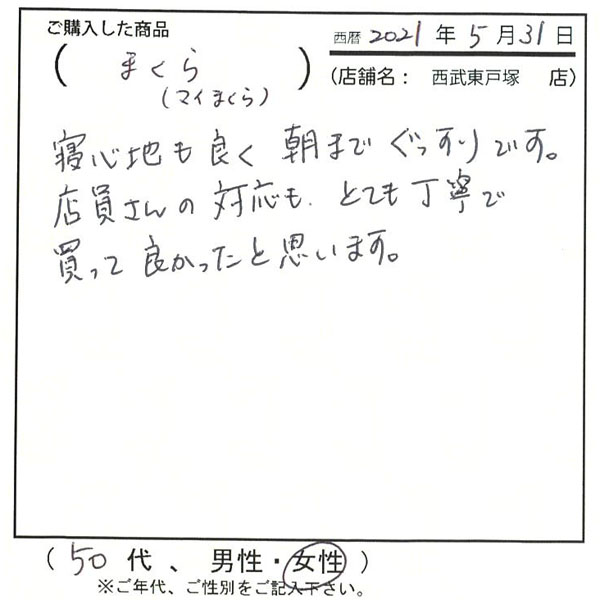 ご購入した商品
西暦 2021 年 5 月 31 日
( まくら )
(マイまくら)
(店舗名： 西武東戸塚 店)
寝心地も良く 朝まで ぐっすりです。
店員さんの 対応も、とても丁寧で
買って 良かったと思います。
( 50 代 、 男性・女性 )
※ご年代、ご性別をご記入下さい。